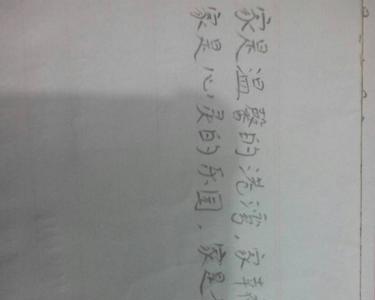 家是温馨的港湾,家
家是心灵的乐园,家是